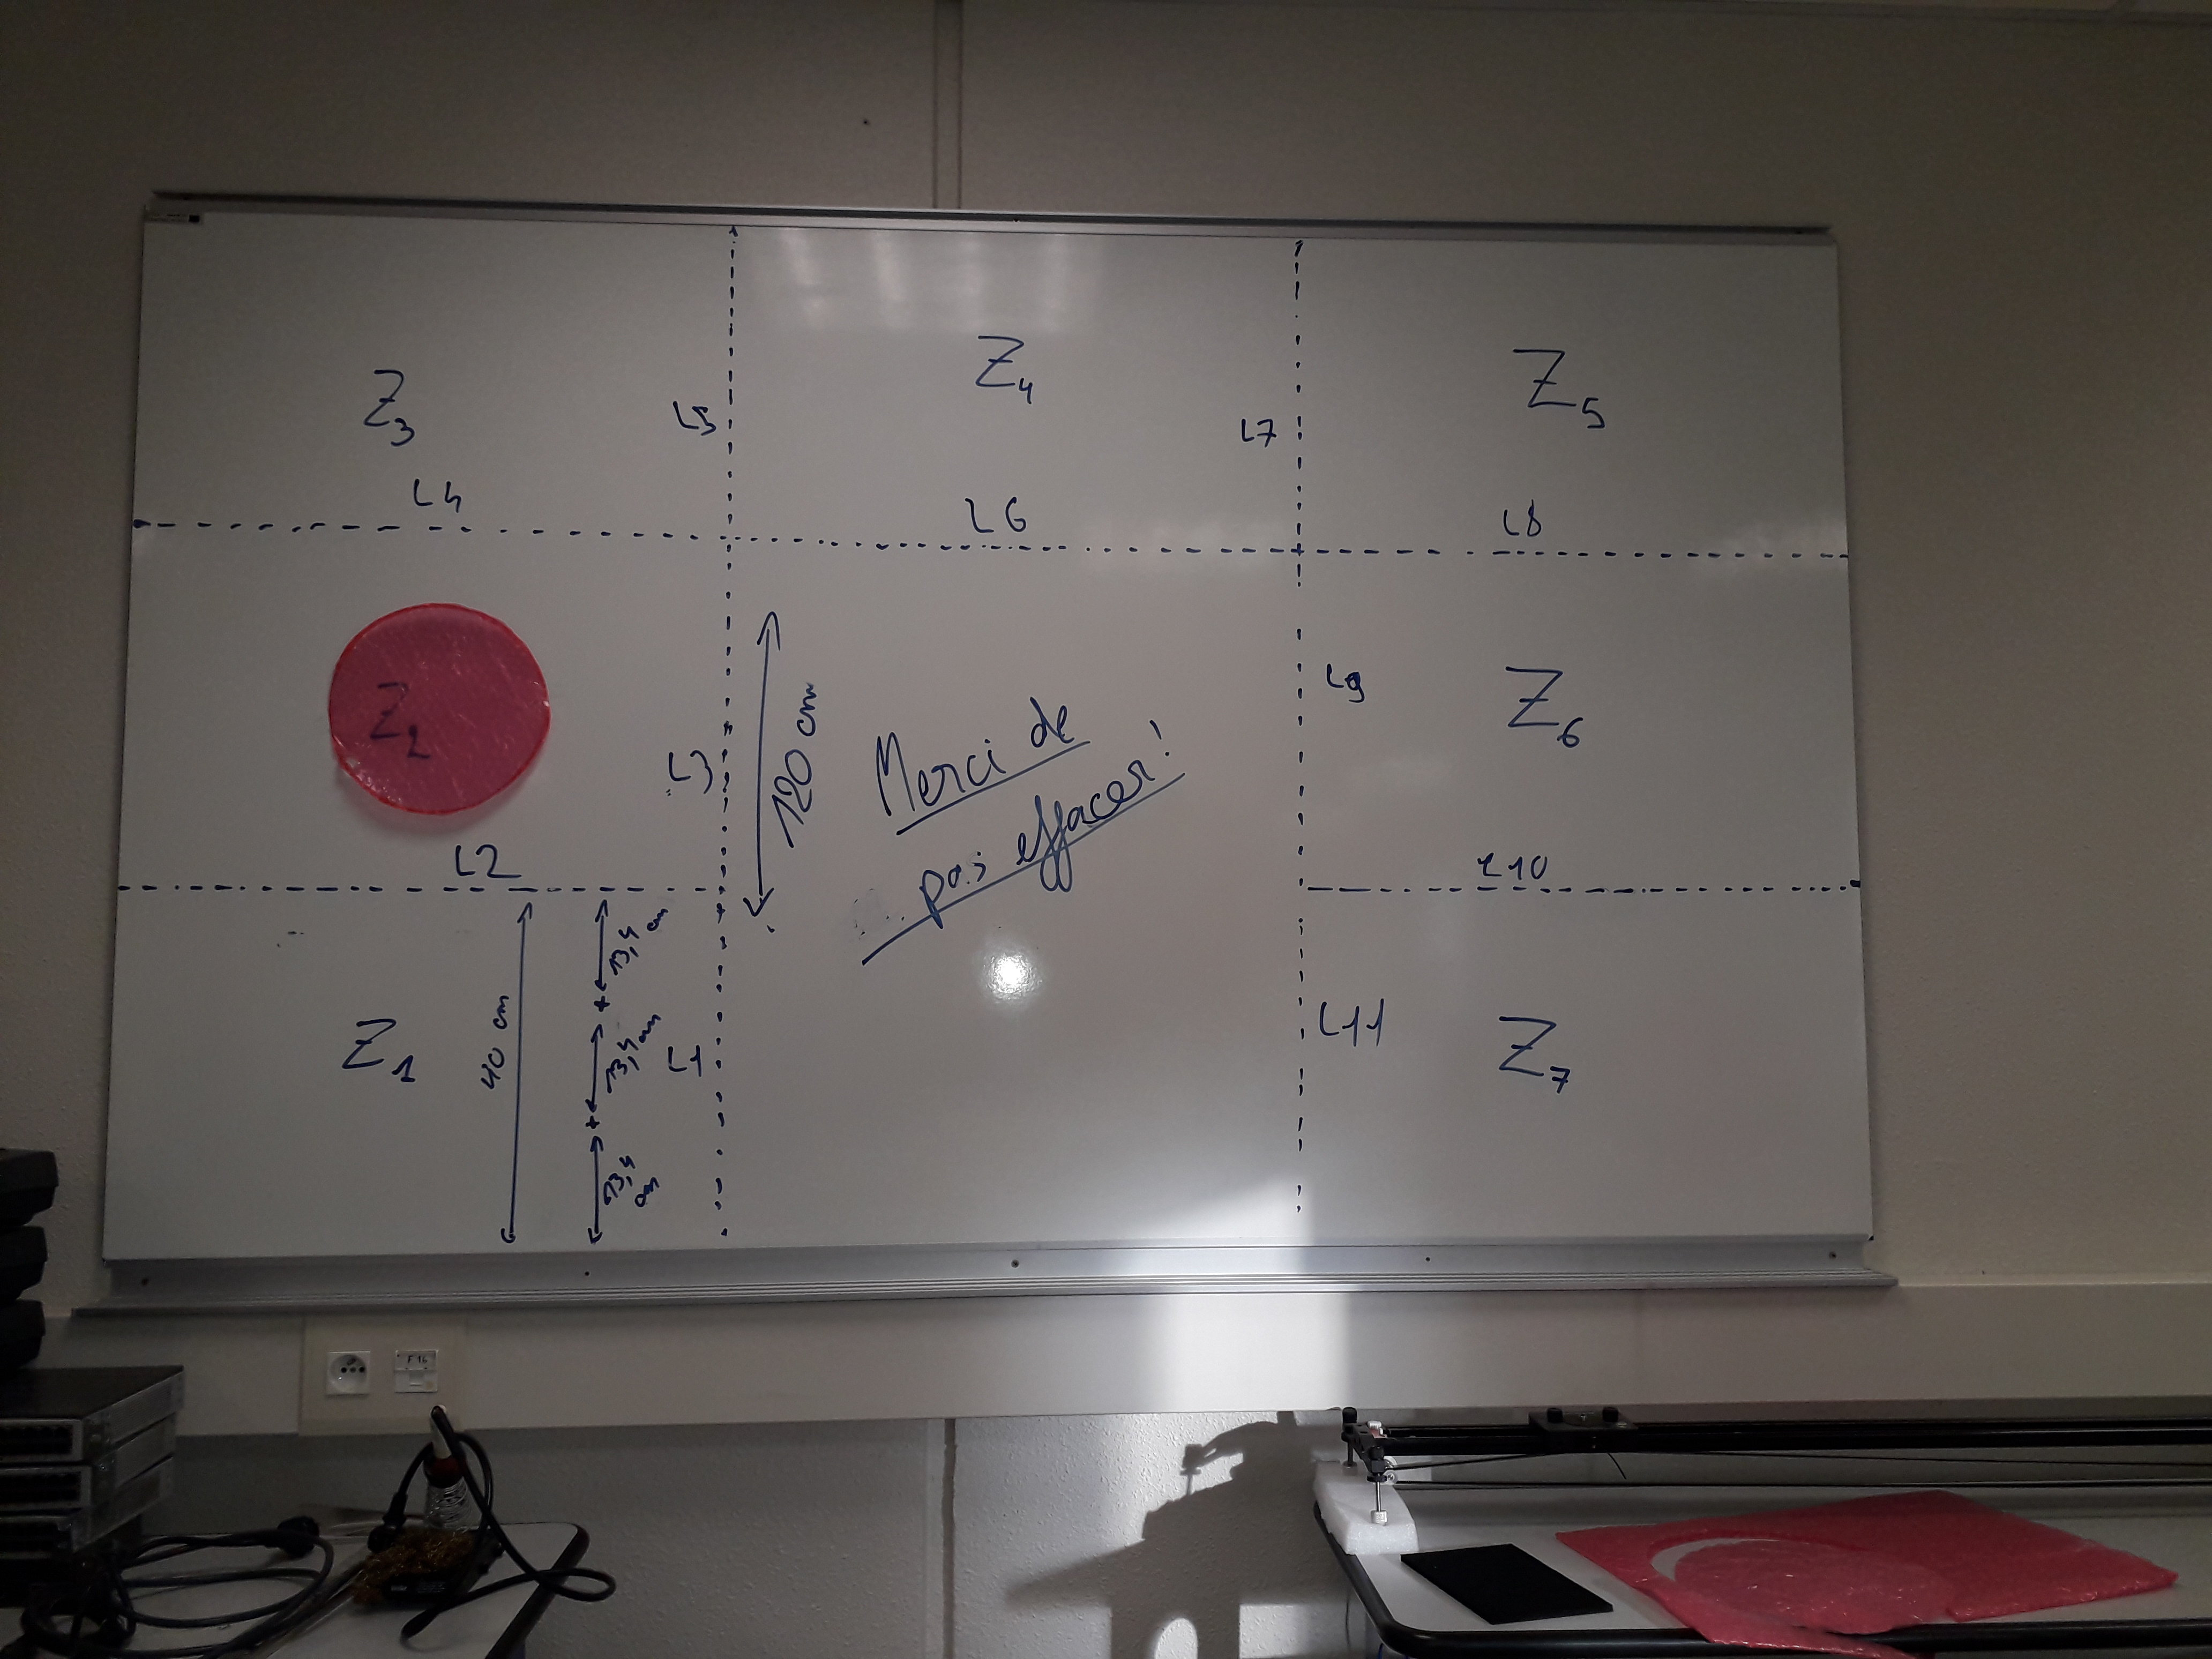 Z3
L5
Z4
L7
Z5
L4
L6
L8
Z2
L3
120 cm
Merci de
pas effacer!
L9
Z6
L2
L10
Z1
40 cm
13,4 cm
+
13,4 cm
+
13,4 cm
L1
L11
Z7